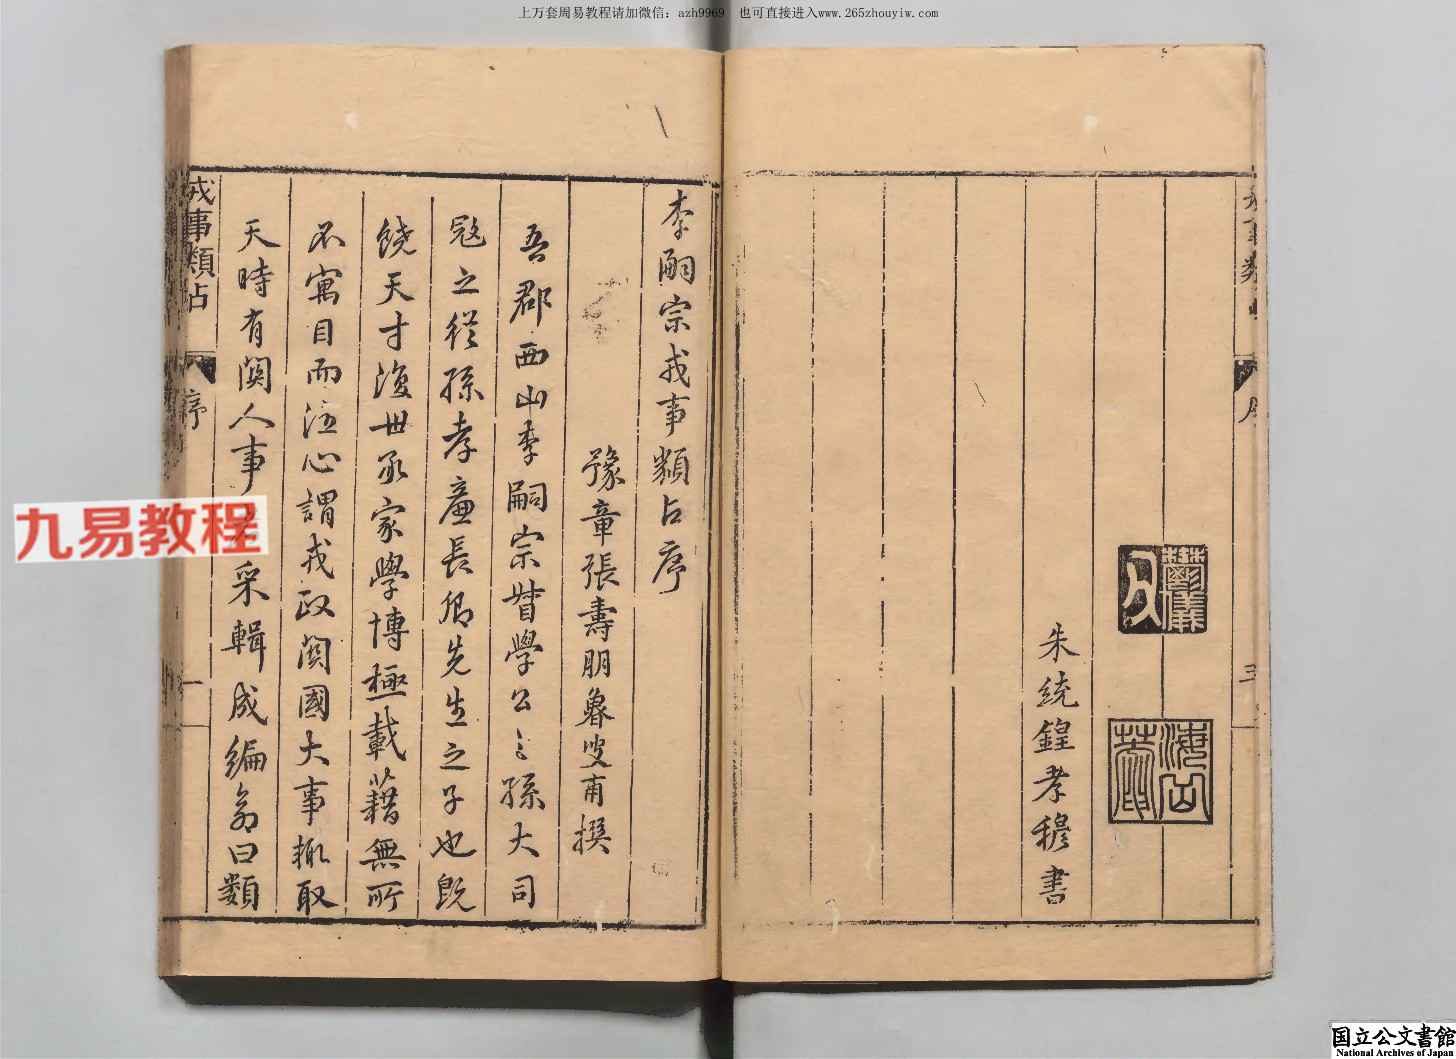 上万套周易教程请加微信：azh9969　也可直接进入www.265zhouyiw.com
序
三
朱統鍠孝穆書
李嗣宗戎事類占序
豫章張壽朋魯叟甫撰
吾郡西山李嗣宗督學公之孫大司
寇之從孫孝廉長卿先生之子也既
饒天才復世承家學博極載籍無所
不寓目而注心謂戎政関國大事輒取
天時有関人事者采輯成編命曰類
戎事類占
序
一
九易教程
国立公文書館
National Archives of Japan